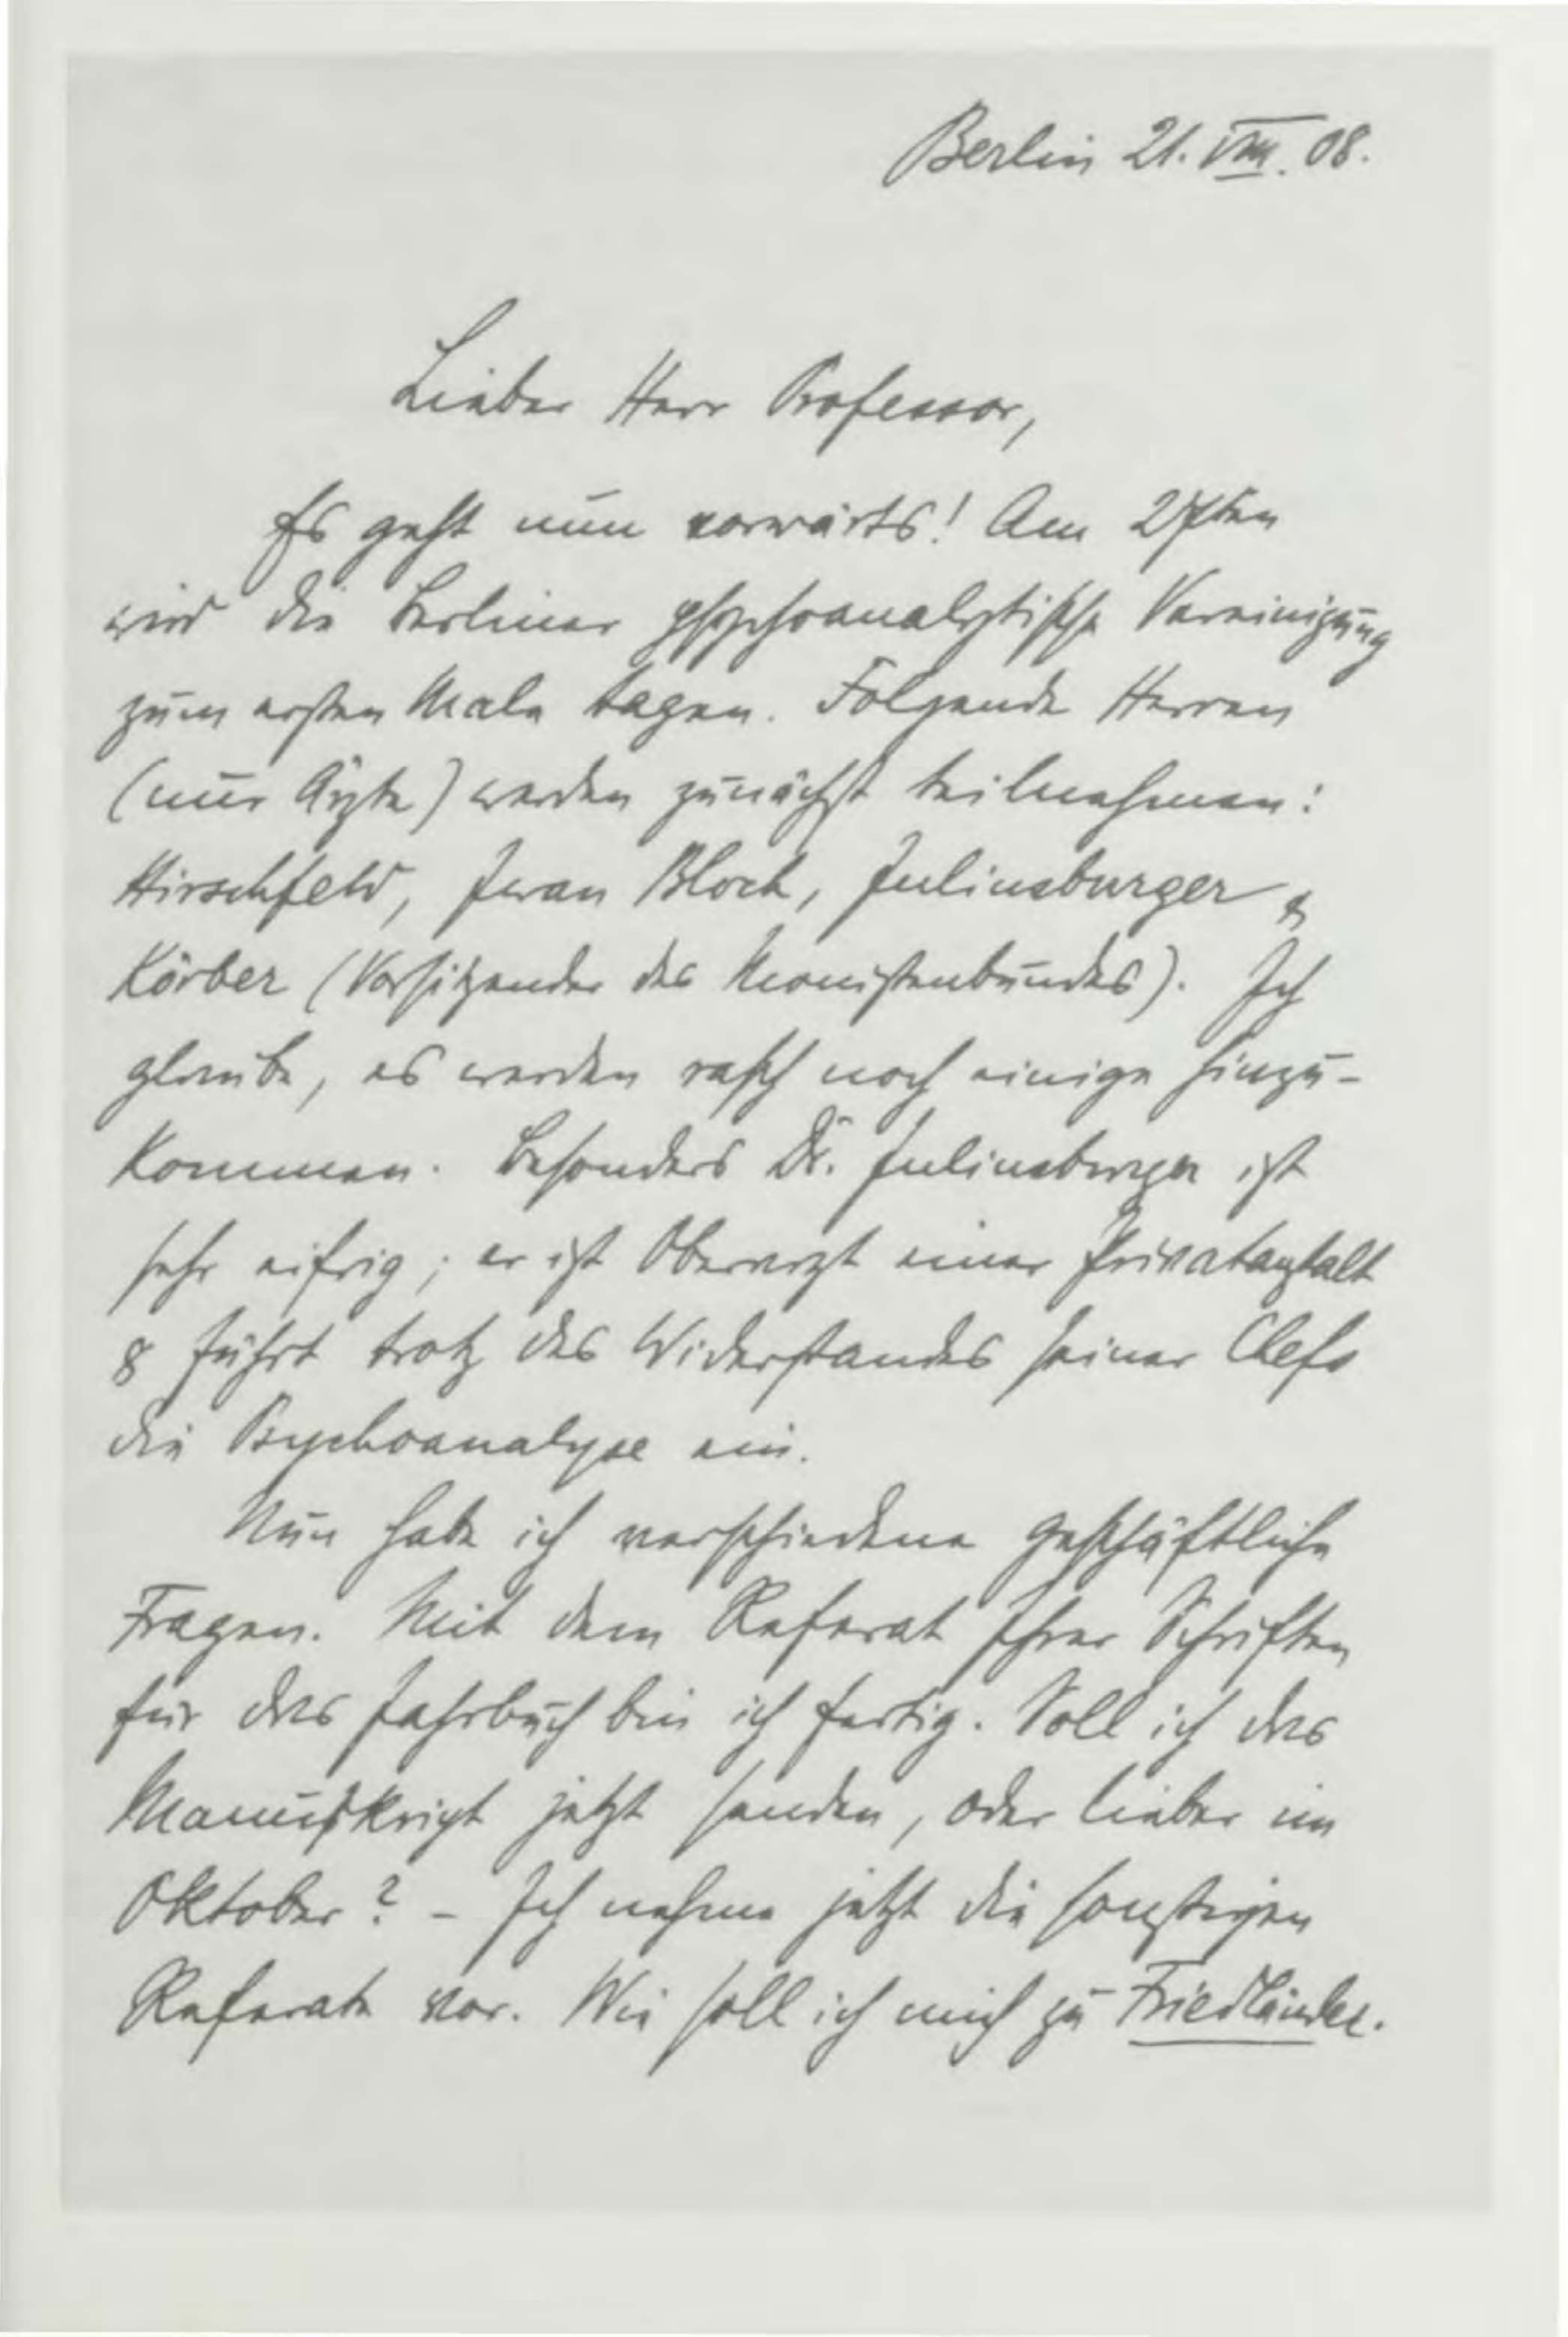 Berlin 21. VIII. 08.
Lieber Herr Professor,
Es geht nun vorwärts! Am 27sten
wird die Berliner psychoanalytische Vereinigung
zum ersten Male tagen. Folgende Herren
(nur Ärzte) werden zunächst teilnehmen:
Hirschfeld, Iwan Bloch, Juliusburger &
Körber (Vorsitzender des Monistenbundes). Ich
glaube, es werden rasch noch einige hinzu-
kommen. Besonders Dr. Juliusburger ist
sehr eifrig; er ist Oberarzt einer Privatanstalt
& führt trotz des Widerstandes seiner Chefs
die Psychoanalyse ein.
Nun habe ich verschiedene geschäftliche
Fragen. Mit dem Referat Ihrer Schriften
für das Jahrbuch bin ich fertig. Soll ich das
Manuskript jetzt senden, oder lieber im
Oktober? – Ich nehme jetzt die sonstigen
Referate vor. Wie soll ich mich zu Friedländer.